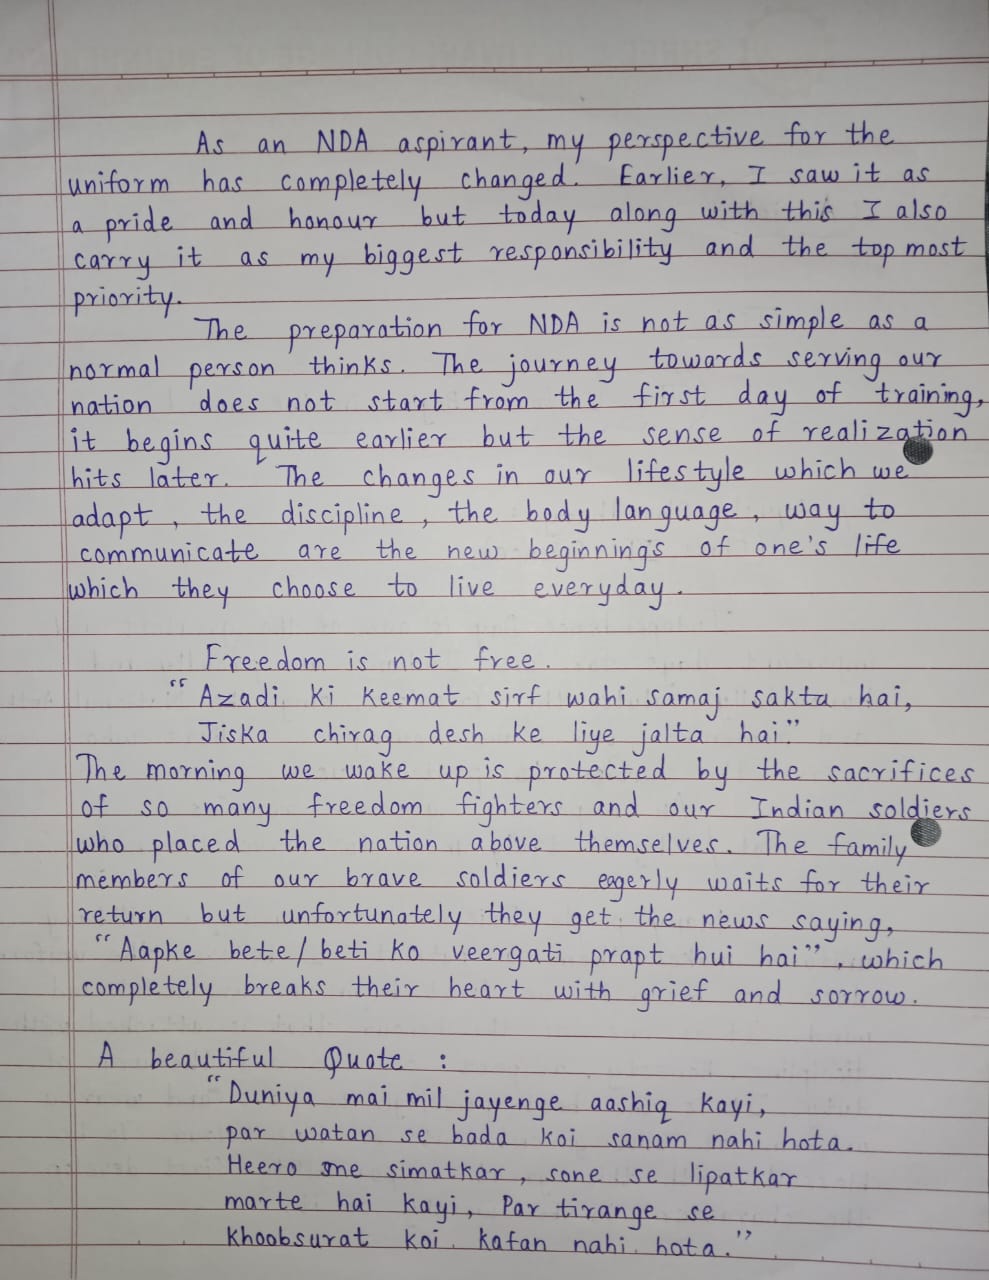 As an NDA aspirant, my perspective for the
uniform has completely changed. Earlier, I saw it as
a pride and honour but today along with this I also
carry it as my biggest responsibility and the top most
priority.
The preparation for NDA is not as simple as a
normal person thinks. The journey towards serving our
nation does not start from the first day of training,
it begins quite earlier but the sense of realization
hits later. The changes in our lifestyle which we
adapt, the discipline, the body language, way to
communicate are the new beginnings of one's life
which they choose to live everyday.
Freedom is not free.
"Azadi ki keemat sirf wahi samaj sakta hai,
Jiska chirag desh ke liye jalta hai."
The morning we wake up is protected by the sacrifices
of so many freedom fighters and our Indian soldiers
who placed the nation above themselves. The family
members of our brave soldiers eagerly waits for their
return but unfortunately they get the news saying,
"Aapke bete/beti ko veergati prapt hui hai", which
completely breaks their heart with grief and sorrow.
A beautiful Quote :
"Duniya mai mil jayenge aashiq kayi,
par watan se bada koi sanam nahi hota.
Heero me simatkar, sone se lipatkar
marte hai kayi, Par tirange se
khoobsurat koi kafan nahi hota."